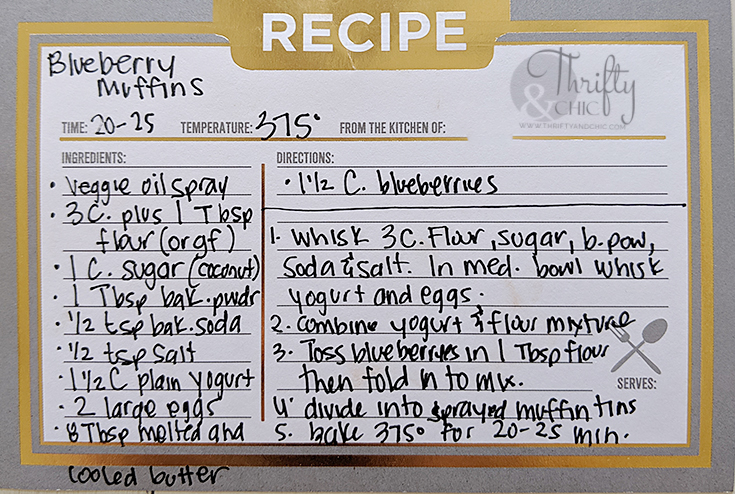 RECIPE
Blueberry
Muffins
Thrifty
& CHIC
WWW.THRIFTYANDCHIC.COM
TIME: 20-25 TEMPERATURE: 375° FROM THE KITCHEN OF:
INGREDIENTS:
• veggie oil spray
• 3 C. plus 1 Tbsp
flour (or gf)
• 1 C. sugar (coconut)
• 1 Tbsp bak. pwdr
• 1/2 tsp bak. soda
• 1/2 tsp salt
• 1 1/2 C plain yogurt
• 2 large eggs
• 8 Tbsp melted and
cooled butter
DIRECTIONS:
• 1 1/2 C. blueberries
1. whisk 3 C. Flour, sugar, b. pow,
soda & salt. In med. bowl whisk
yogurt and eggs.
2. combine yogurt & flour mixture
3. Toss blueberries in 1 Tbsp flour
then fold in to mix.
SERVES:
4. divide into sprayed muffin tins
5. bake 375° for 20-25 min.